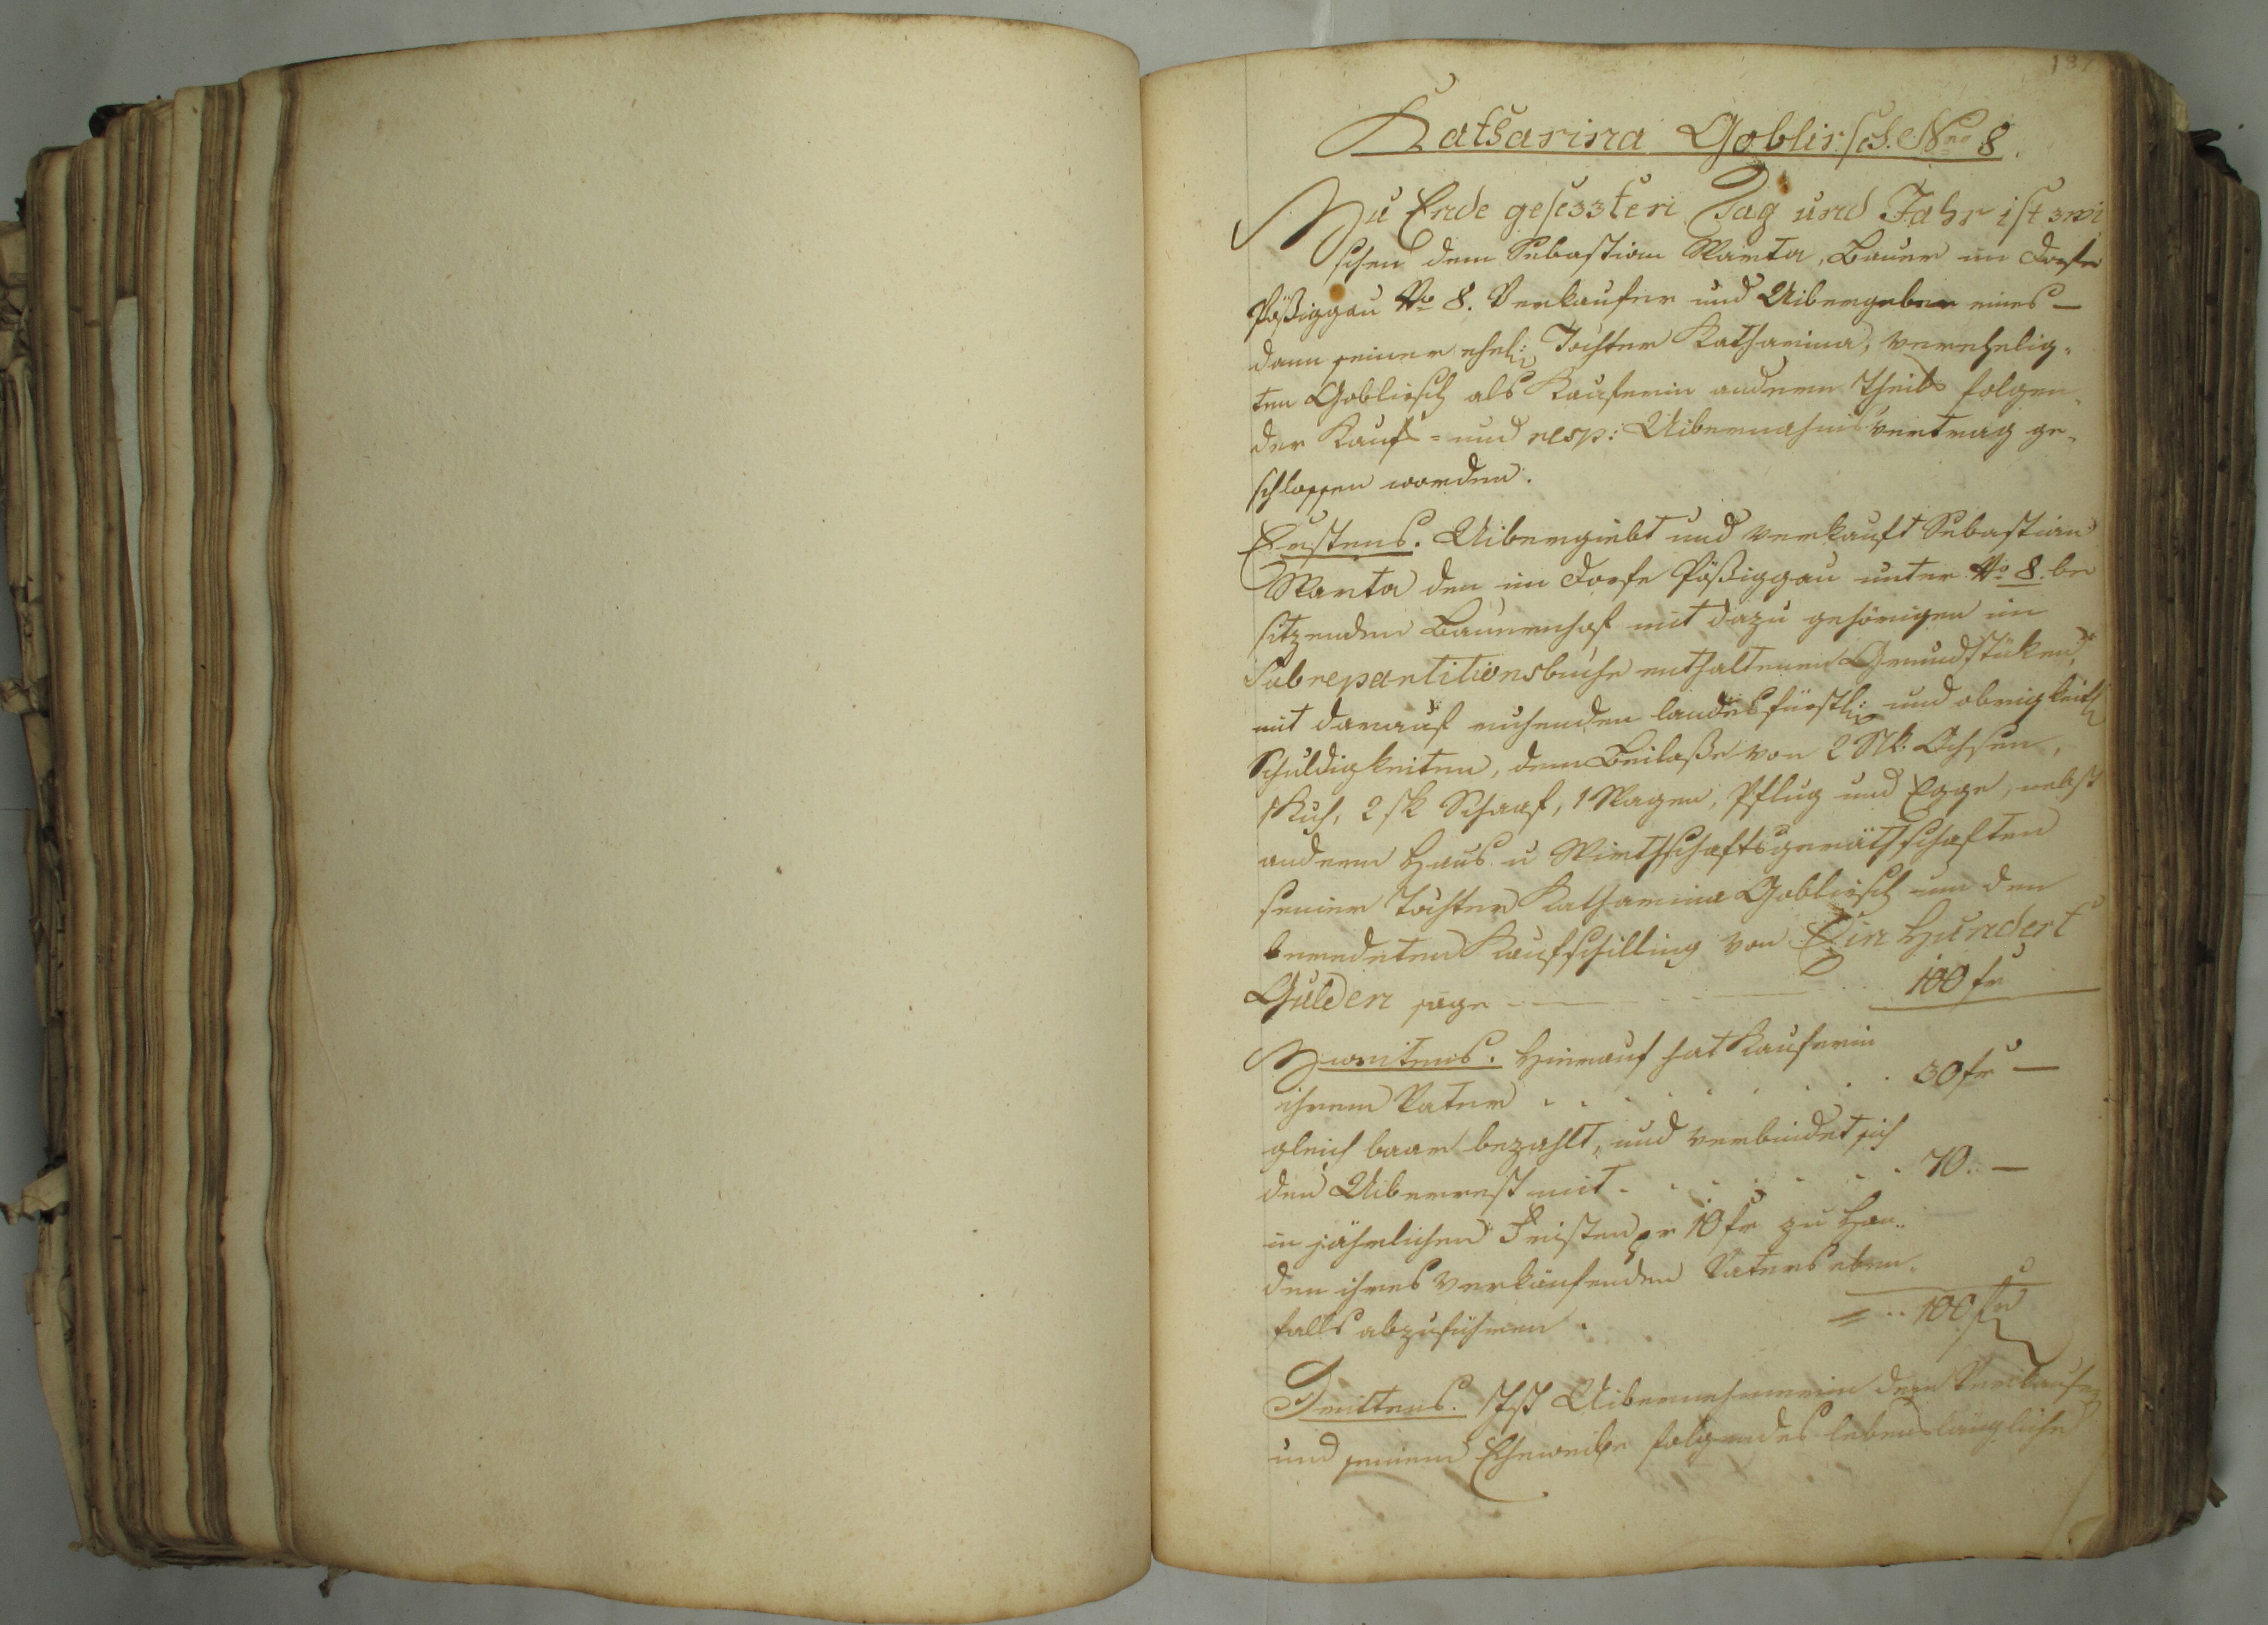 137
Katharina Goblirsch. Nro 8.
Zu Ende gesezzten Tag und Jahr ist zwi
schen dem Sebastian Warta, Bauer im Dorfe
Pößiggau No 8. Verkaufer und Uibergeber eines –
dann seiner ehel: Tochter Katharina, verehelig-
ten Goblirsch als Kauferin anderen Theils folgen-
der Kauf- und resp: Uibernahmsvertrag ge-
schlossen worden.
Erstens. Uibergiebt und verkauft Sebastian
Warta den im Dorfe Pößiggau unter No 8. be
sitzenden Bauernhof mit dazu gehörigen im
Subrepartitionsbuche enthaltenen Grundstüken,
mit darauf ruhenden landesfürstl: und obrigkeitl
Schuldigkeiten, dem Beilaße von 2 Stk. Ochsen,
1 Kuh, 2 stk Schaaf, 1 Wagen, Pflug und Egge, nebst
andern Haus u Wirthschaftsgeräthschaften
seiner Tochter Katharina Goblirsch um den
beredeten Kaufschilling von Ein Hundert
Gulden sage 100 fr
Zweitens. Hierauf hat Kauferin
ihrem Vater . . . . . . . 30 fr –
gleich baar bezahlt, und verbindet sich
den Uiberrest mit . . . . . . . 70.. –
in jährlichen Fristen pr 10 fr zu Han-
den ihres verkaufenden Vaters eben-
falls abzuführen. = .. 100 fr
Drittens. Uibernehmerin dem Verkaufer
und seinem Eheweibe folgendes lebenslängliche